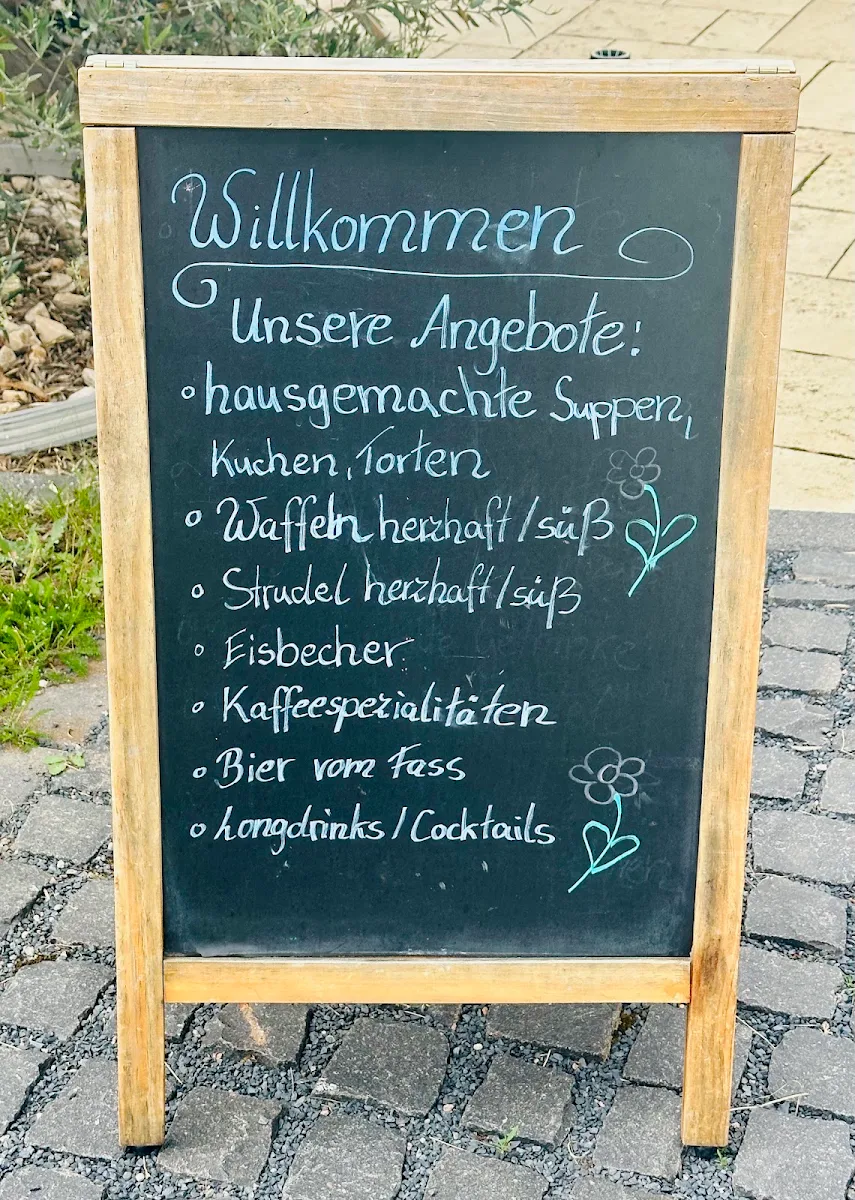 Willkommen
Unsere Angebote:
hausgemachte Suppen,
Kuchen, Torten
Waffeln herzhaft/süß
Strudel herzhaft/süß
Eisbecher
Kaffeespezialitäten
Bier vom Fass
Longdrinks/Cocktails